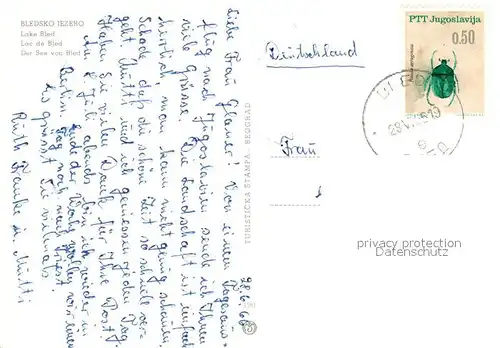 BLEDSKO JEZERO
Lake Bled
Lac de Bled
Der See von Bled
28.6.66
Liebe Frau Glaner! Von einem Tagesaus-
flug nach Jugoslawien sende ich Ihnen
viele Grüsse. Die Landschaft ist einfach
herrlich, man kann nicht genug schauen.
Schade, daß die schöne Zeit so schnell ver-
geht. Mutti und ich geniessen jeden Tag.
Haben Sie vielen Dank für Ihre Post.
Am Juli abends bin ich wieder in
Berlin.
Es grüsst Sie vielmals
Ruth Franke u. Mutti
TURISTIČKA ŠTAMPA - BEOGRAD
Deutschland
Frau
PTT Jugoslavija
0.50
BLED
privacy protection
Datenschutz